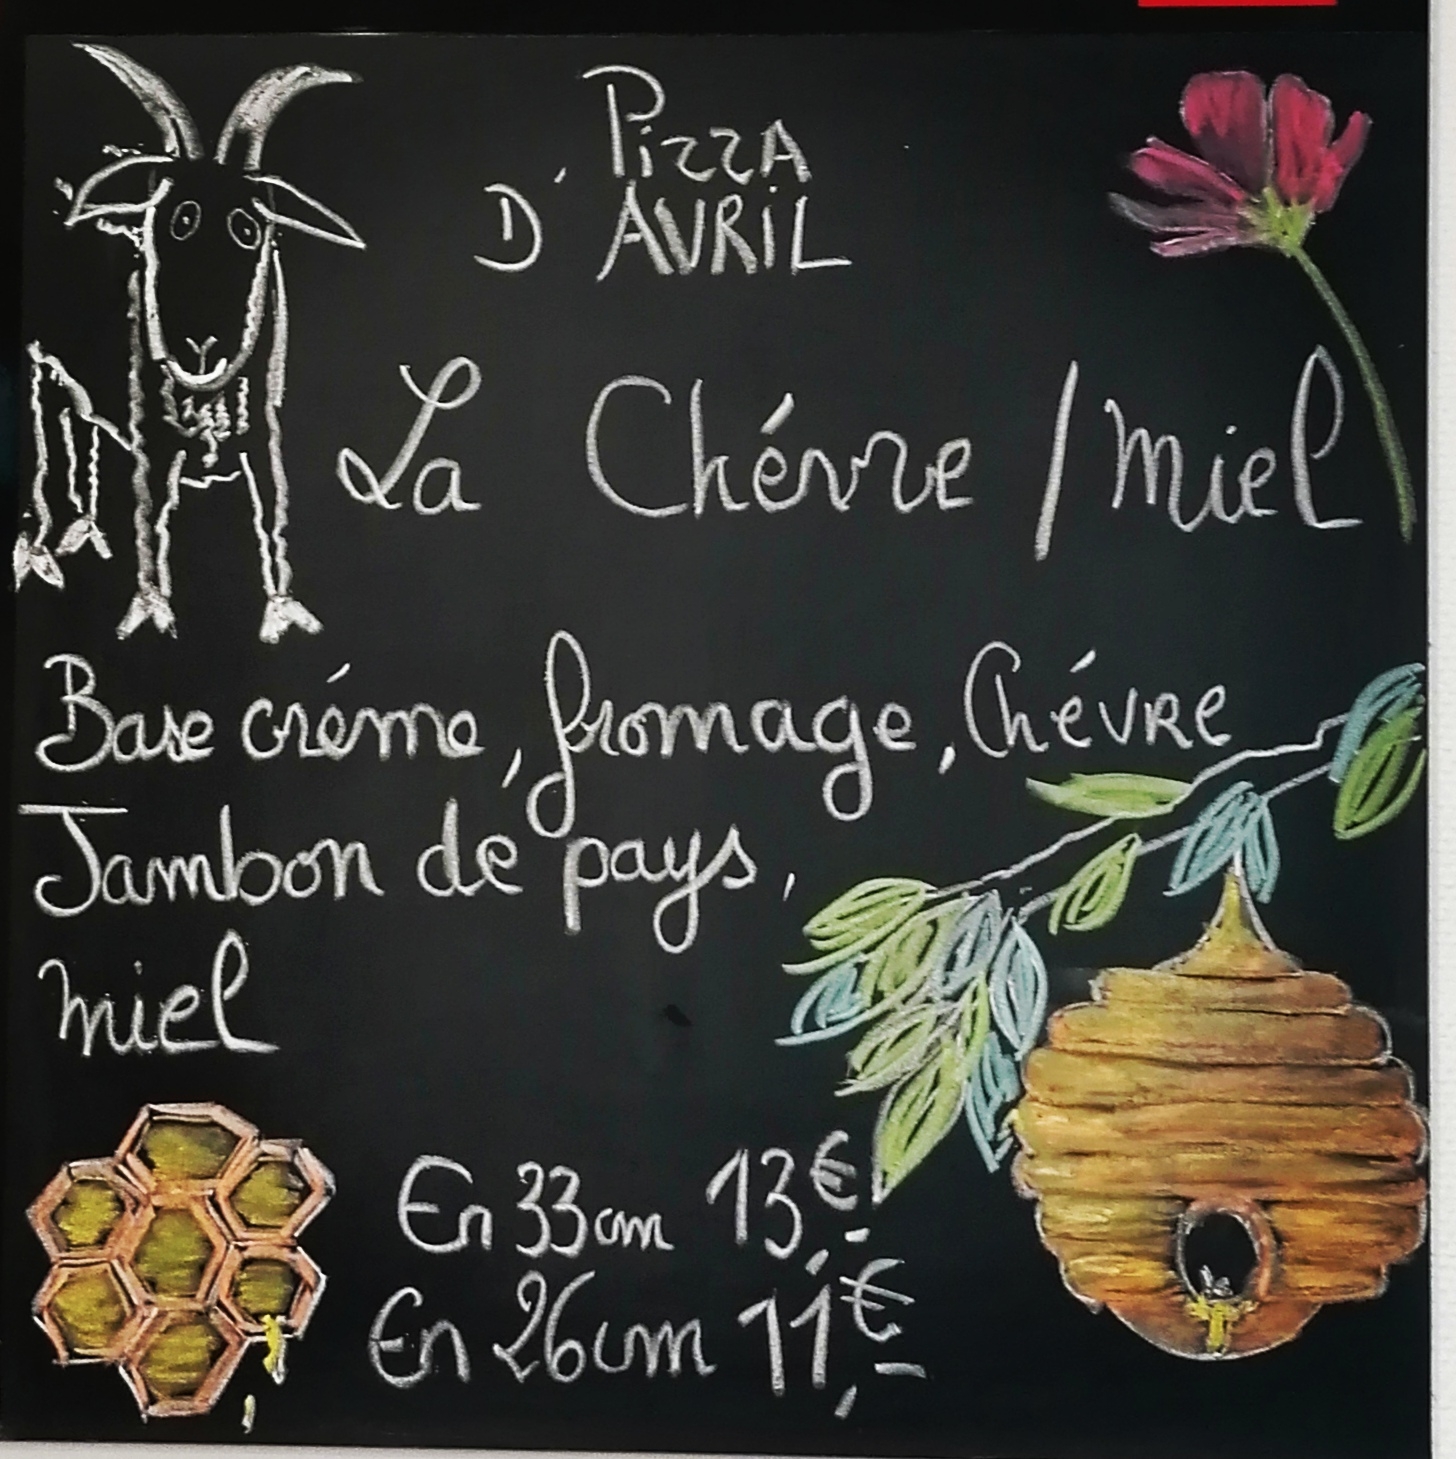 Pizza
D'AVRIL
La Chévre / miel
Base créme, fromage, Chévre
Jambon de pays,
miel
En 33cm 13,-€
En 26cm 11,-€